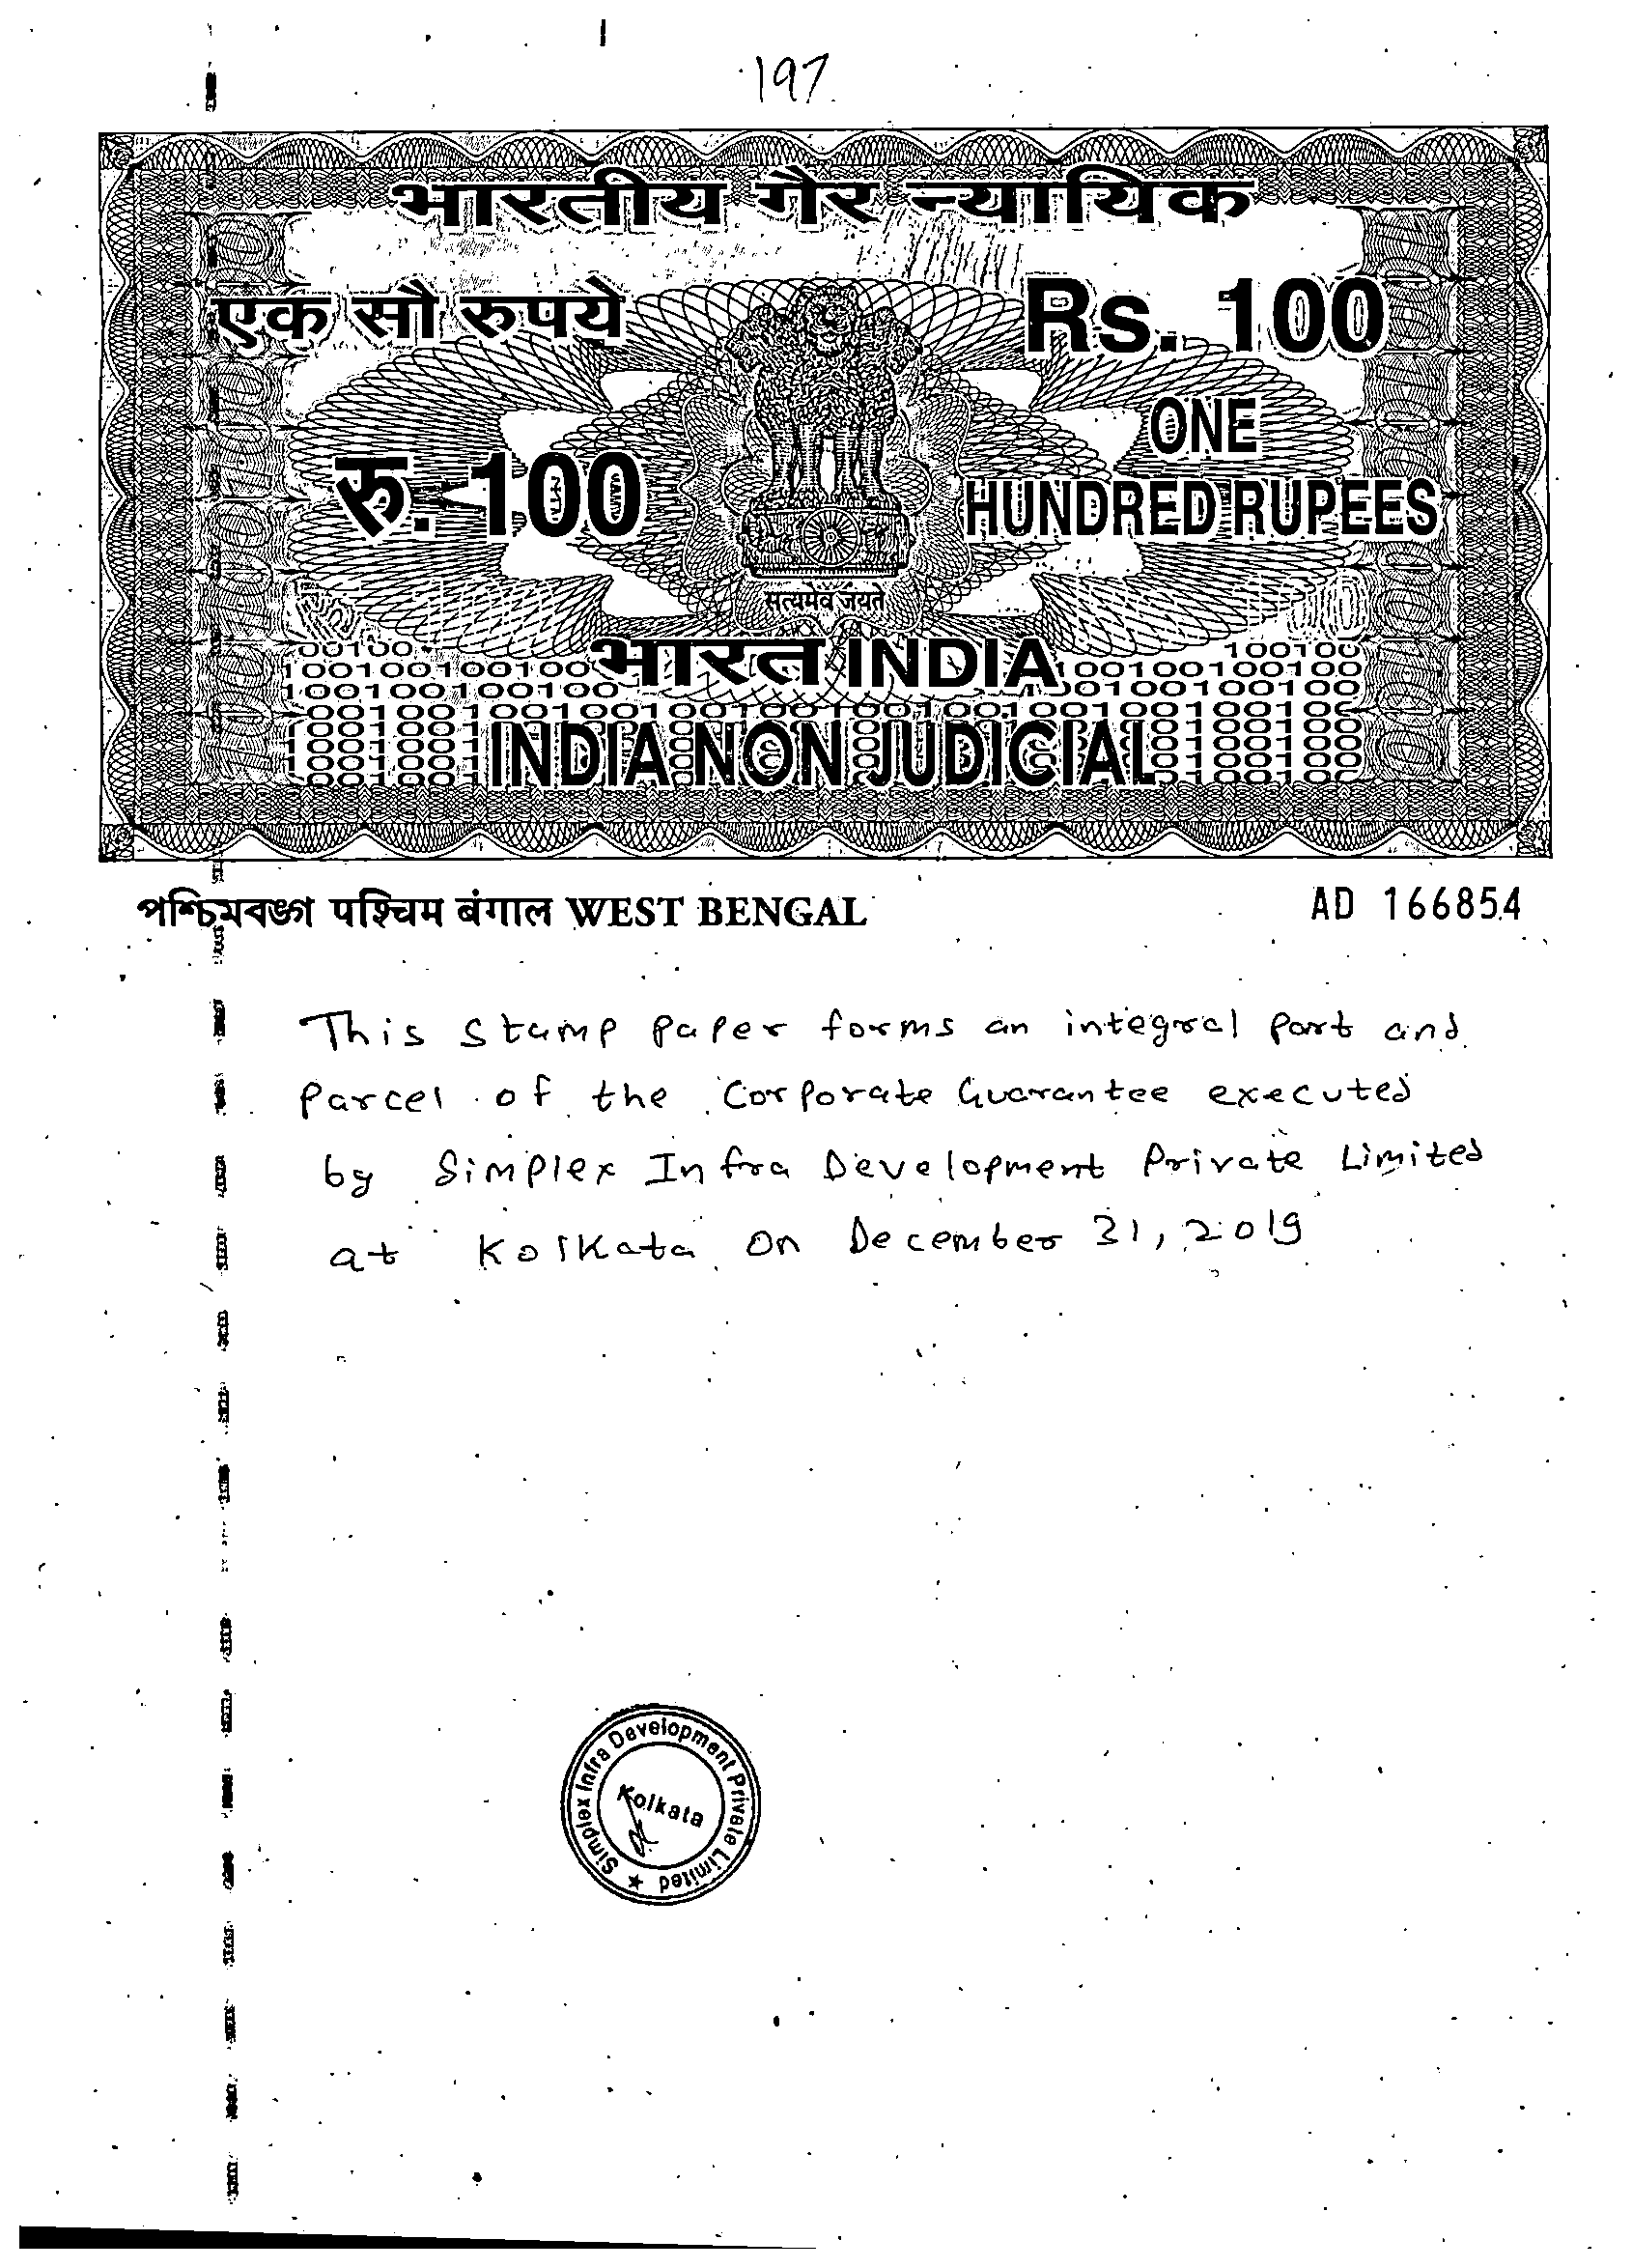 197
भारतीय गैर न्यायिक
एक सौ रुपये
Rs. 100
रु. 100
ONE
HUNDRED RUPEES
सत्यमेव जयते
भारत INDIA
INDIA NON JUDICIAL
পশ্চিমবঙ্গ पश्चिम बंगाल WEST BENGAL
AD 166854
This Stamp Paper forms an integral Part and
Parcel of the Corporate Guarantee executed
by Simplex Infra Development Private Limited
at Kolkata on December 31, 2019
Simplex Infra Development Private Limited
Kolkata